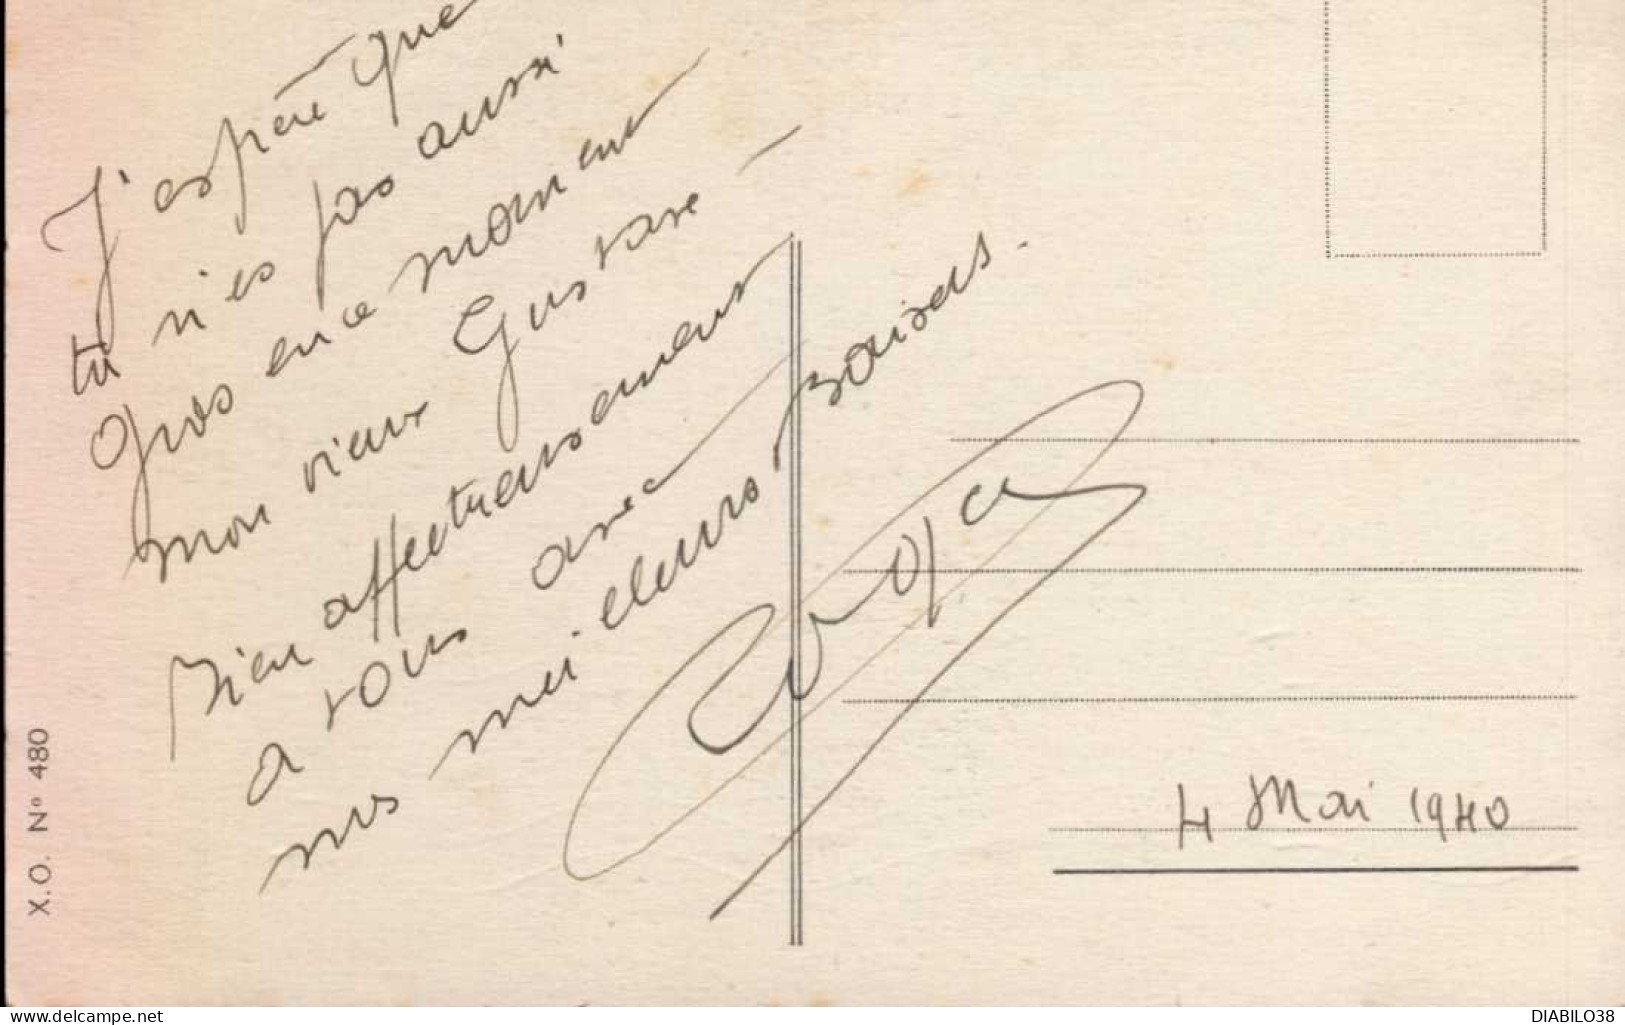 J'espère que
tu n'es pas aussi
gros en ce moment
mon vieux Gustave -
Bien affectueusement
a vous avec
nos meilleurs baisers.
4 Mai 1940
X.O. N° 480
www.delcampe.net
DIABILO38